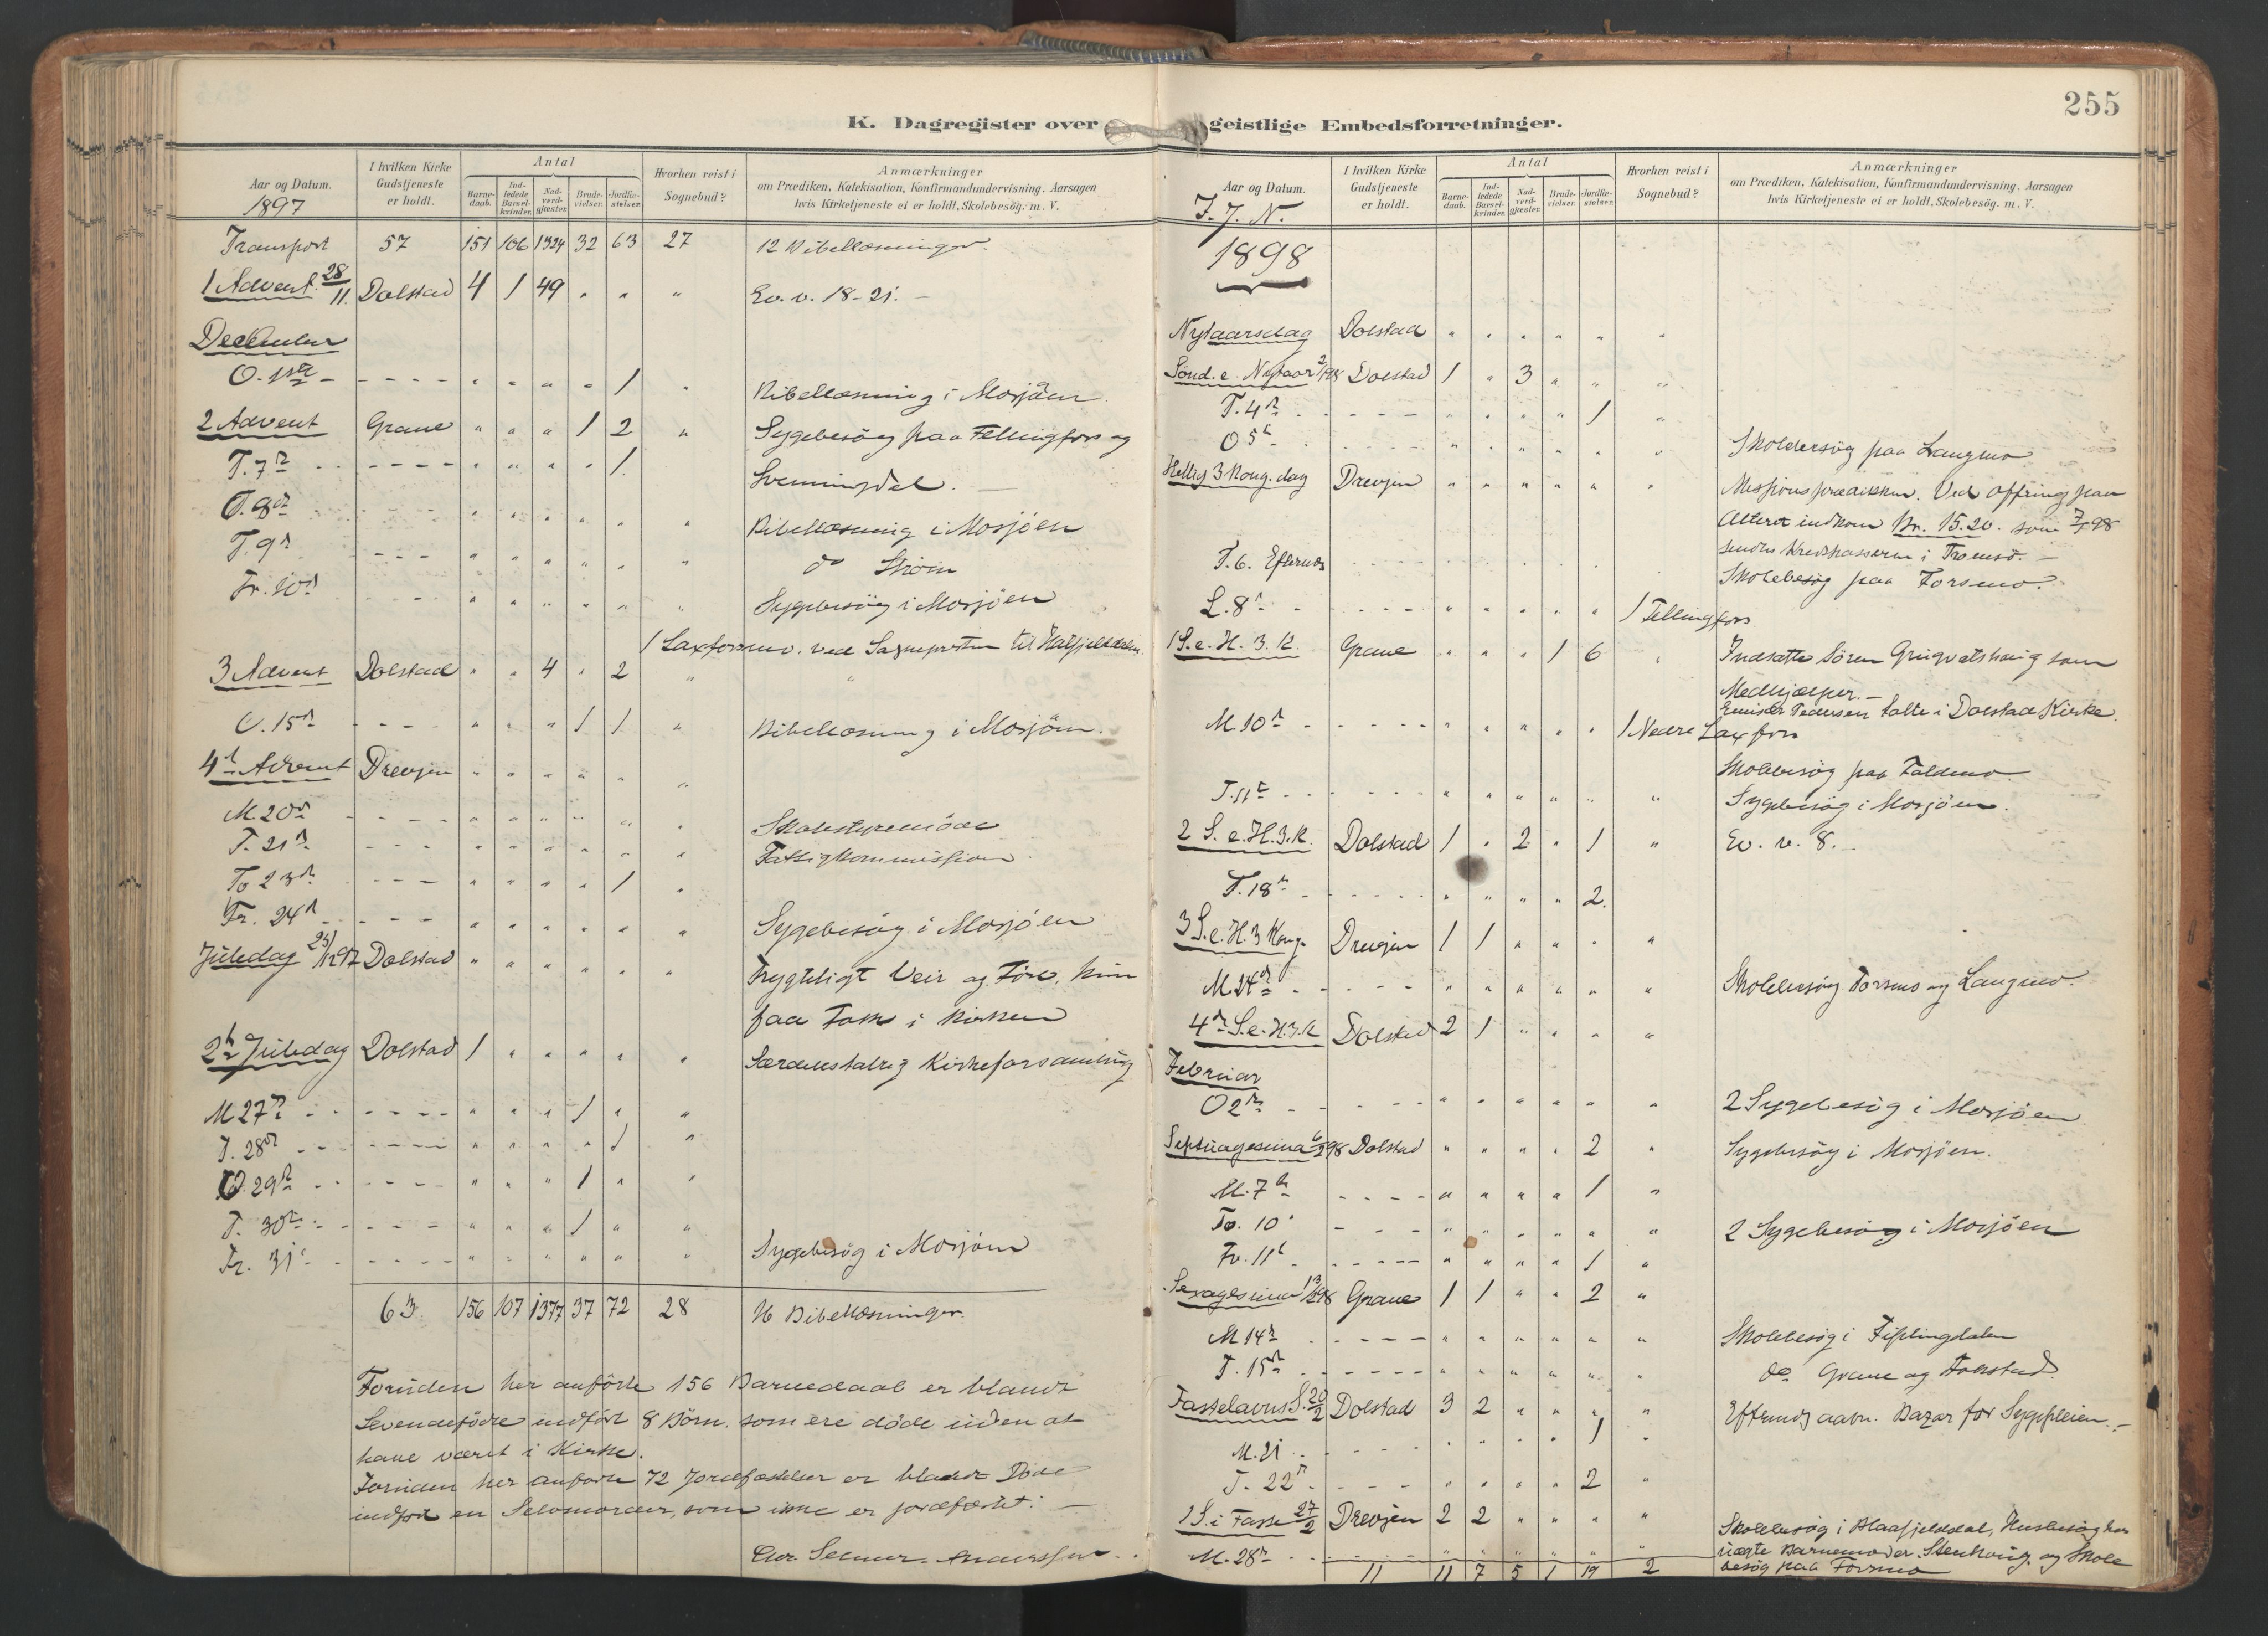 255
K. Dagregister over geistlige Embedsforretninger.
Aar og Datum. 1897 | I hvilken Kirke Gudstjeneste er holdt. | Antal | Barnedaab. | Indledede Barselkvinder. | Nadverdgjæster. | Brudevielser. | Jordfæstelser. | Hvorhen reist i Sognebud? | Anmærkninger om Prædiken, Katekisation, Konfirmandundervisning. Aarsagen hvis Kirketjeneste ei er holdt, Skolebesøg. m. V.
Transport 57 151 106 1324 32 63 27 12 Bibellæsninger.
1 Advent 28/11 Dolstad 4 1 49 " " " Ev. v. 18-21. -
December
O. 1ste - - - - - " " " " 1 " Bibellæsning i Mosjøen.
2 Advent Grane " " " 1 2 " Sygebesøg paa Fellingfors og
T. 7d - - - - " " " " 1 Svenningdal. -
O. 8de " " " " " " Bibellæsning i Mosjøen
T. 9d - - - " " " " " " do Strøm
Fr. 10d - - - " " " " " " Sygebesøg i Mosjøen
1 Laxforsmo. ved til Hatfjelddalen.
3 Advent Dolstad " " 4 " 2 " "
O. 15d - - - " " " 1 1 " Bibellæsning i Mosjøen.
4d Advent Drevjen " " " " " "
M. 20de - - - - " " " " " " Skolestyremøde
T. 21d - - - " " " " " " Fattigkommission.
To 23d - - - " " " " 1 "
Fr. 24d - - - - " " " " " " Sygebesøg i Mosjøen
Juledag 25/12 97 Dolstad " " " " " " Frygteligt Veir og Føre, kun
faa Folk i Kirken
2d Juledag Dolstad 1 " " " " " Særdeles talrig Kirkeforsamling
M 27d - - - - - - " " " 1 " "
T. 28d - - - - - - " " " " 1 "
O. 29d - - - - - - " " " 1 " "
T. 30d - - - - - " " " 1 " "
Fr. 31 - - - - - - " " " " " " Sygebesøg i Mosjøen
63. 156 107 1377 37 72 28 16 Bibellæsninger.
Foruden her anførte 156 Barnedaab er blandt
Levendefødte indført 8 Børn, som ere døde uden at
have været i Kirke.
Foruden her anførte 72 Jordfæstelser er blandt Døde
indført en Selvmorder, som ikke er jordfæstet. -
Chr. Selmer-Anderssen.
Aar og Datum. | I hvilken Kirke Gudstjeneste er holdt. | Antal | Barnedaab. | Indledede Barselkvinder. | Nadverdgjæster. | Brudevielser. | Jordfæstelser. | Hvorhen reist i Sognebud? | Anmærkninger om Prædiken, Katekisation, Konfirmandundervisning. Aarsagen hvis Kirketjeneste ei er holdt, Skolebesøg. m. V.
I. J. N.
1898
Nytaarsdag Dolstad " " " " " "
Sønd. e. Nytaar 2/1 98 Dolstad 1 " 3 " " "
T. 4d - - - - - " " " " 1 "
O 5t - - - - - " " " " " " Skolebesøg paa Langmo
Hellig 3 Kong. dag Drevjen " " " " " " Missionsprædiken. Ved Offring paa
Alteret indkom Kr. 15.20. som 7/1 98
sendes Kredskasseren i Tromsø. -
T. 6. Efterm. Skolebesøg paa Forsmo.
L. 8d - - - - - " " " " " 1 Fellingfors
1 S. e. H. 3. K. Grane " " " 1 6 " Indsatte Søren som
Medhjælper. -
Emissær Pedersen talte i Dolstad Kirke.
M. 10d - - - - - - " " " " " 1 Nedre Laxfors
Skolebesøg paa
T. 11t - - - - - - " " " " " " Sygebesøg i Mosjøen.
2 S. e. H. 3. K. Dolstad 1 " 2 " 1 " Ev. v. 8. -
T. 18d - - - - - - " " " " 2.
3 S. e. H. 3 Kong. Drevjen 1 1 " " " "
M. 24d - - - - - " " " " " " Skolebesøg Forsmo og Langmo.
4d S. e. H. 3. K Dolstad 2 1 " " " "
Februar
O 2d - - - - - " " " " " " 2 Sygebesøg i Mosjøen.
Septuagesima 6/2 98 Dolstad " " " " 2 " Sygebesøg i Mosjøen.
M. 7d - - - - " " " " 1 "
To. 10. - - - " " " " " " 2 Sygebesøg i Mosjøen
Fr. 11t - - - - - - " " " " 1 "
Sexagesima 13/2 98 Grane 1 1 " " 2 "
M 14d - - - - " " " " " " Skolebesøg i Fiplingdalen
T. 15d - - - - - - " " " " " " do Grane og
Fastelavns S. 20/2 Dolstad 3 2 " " " " Efterm. aabn. Bazar for Sygepleien. -
M. 21 - - - - - " " " " 1 "
T. 22d - - - - " " " " 2 "
1 S. i Faste 27/2 Drevjen 2 2 " " " " Skolebesøg i Blaafjelddal, Husbesøg hos
M. 28d - - - - - - " " " " " " uægte Barnemoder. Stenhoug. og Skole
11 11 7 5 1 19 2 besøg paa Forsmo